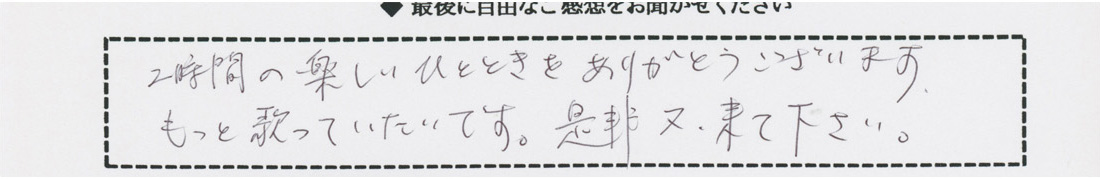 ◆ 最後に自由なご感想をお聞かせください
2時間の楽しいひとときをありがとうございます.
もっと歌っていたいです。是非又.来て下さい。